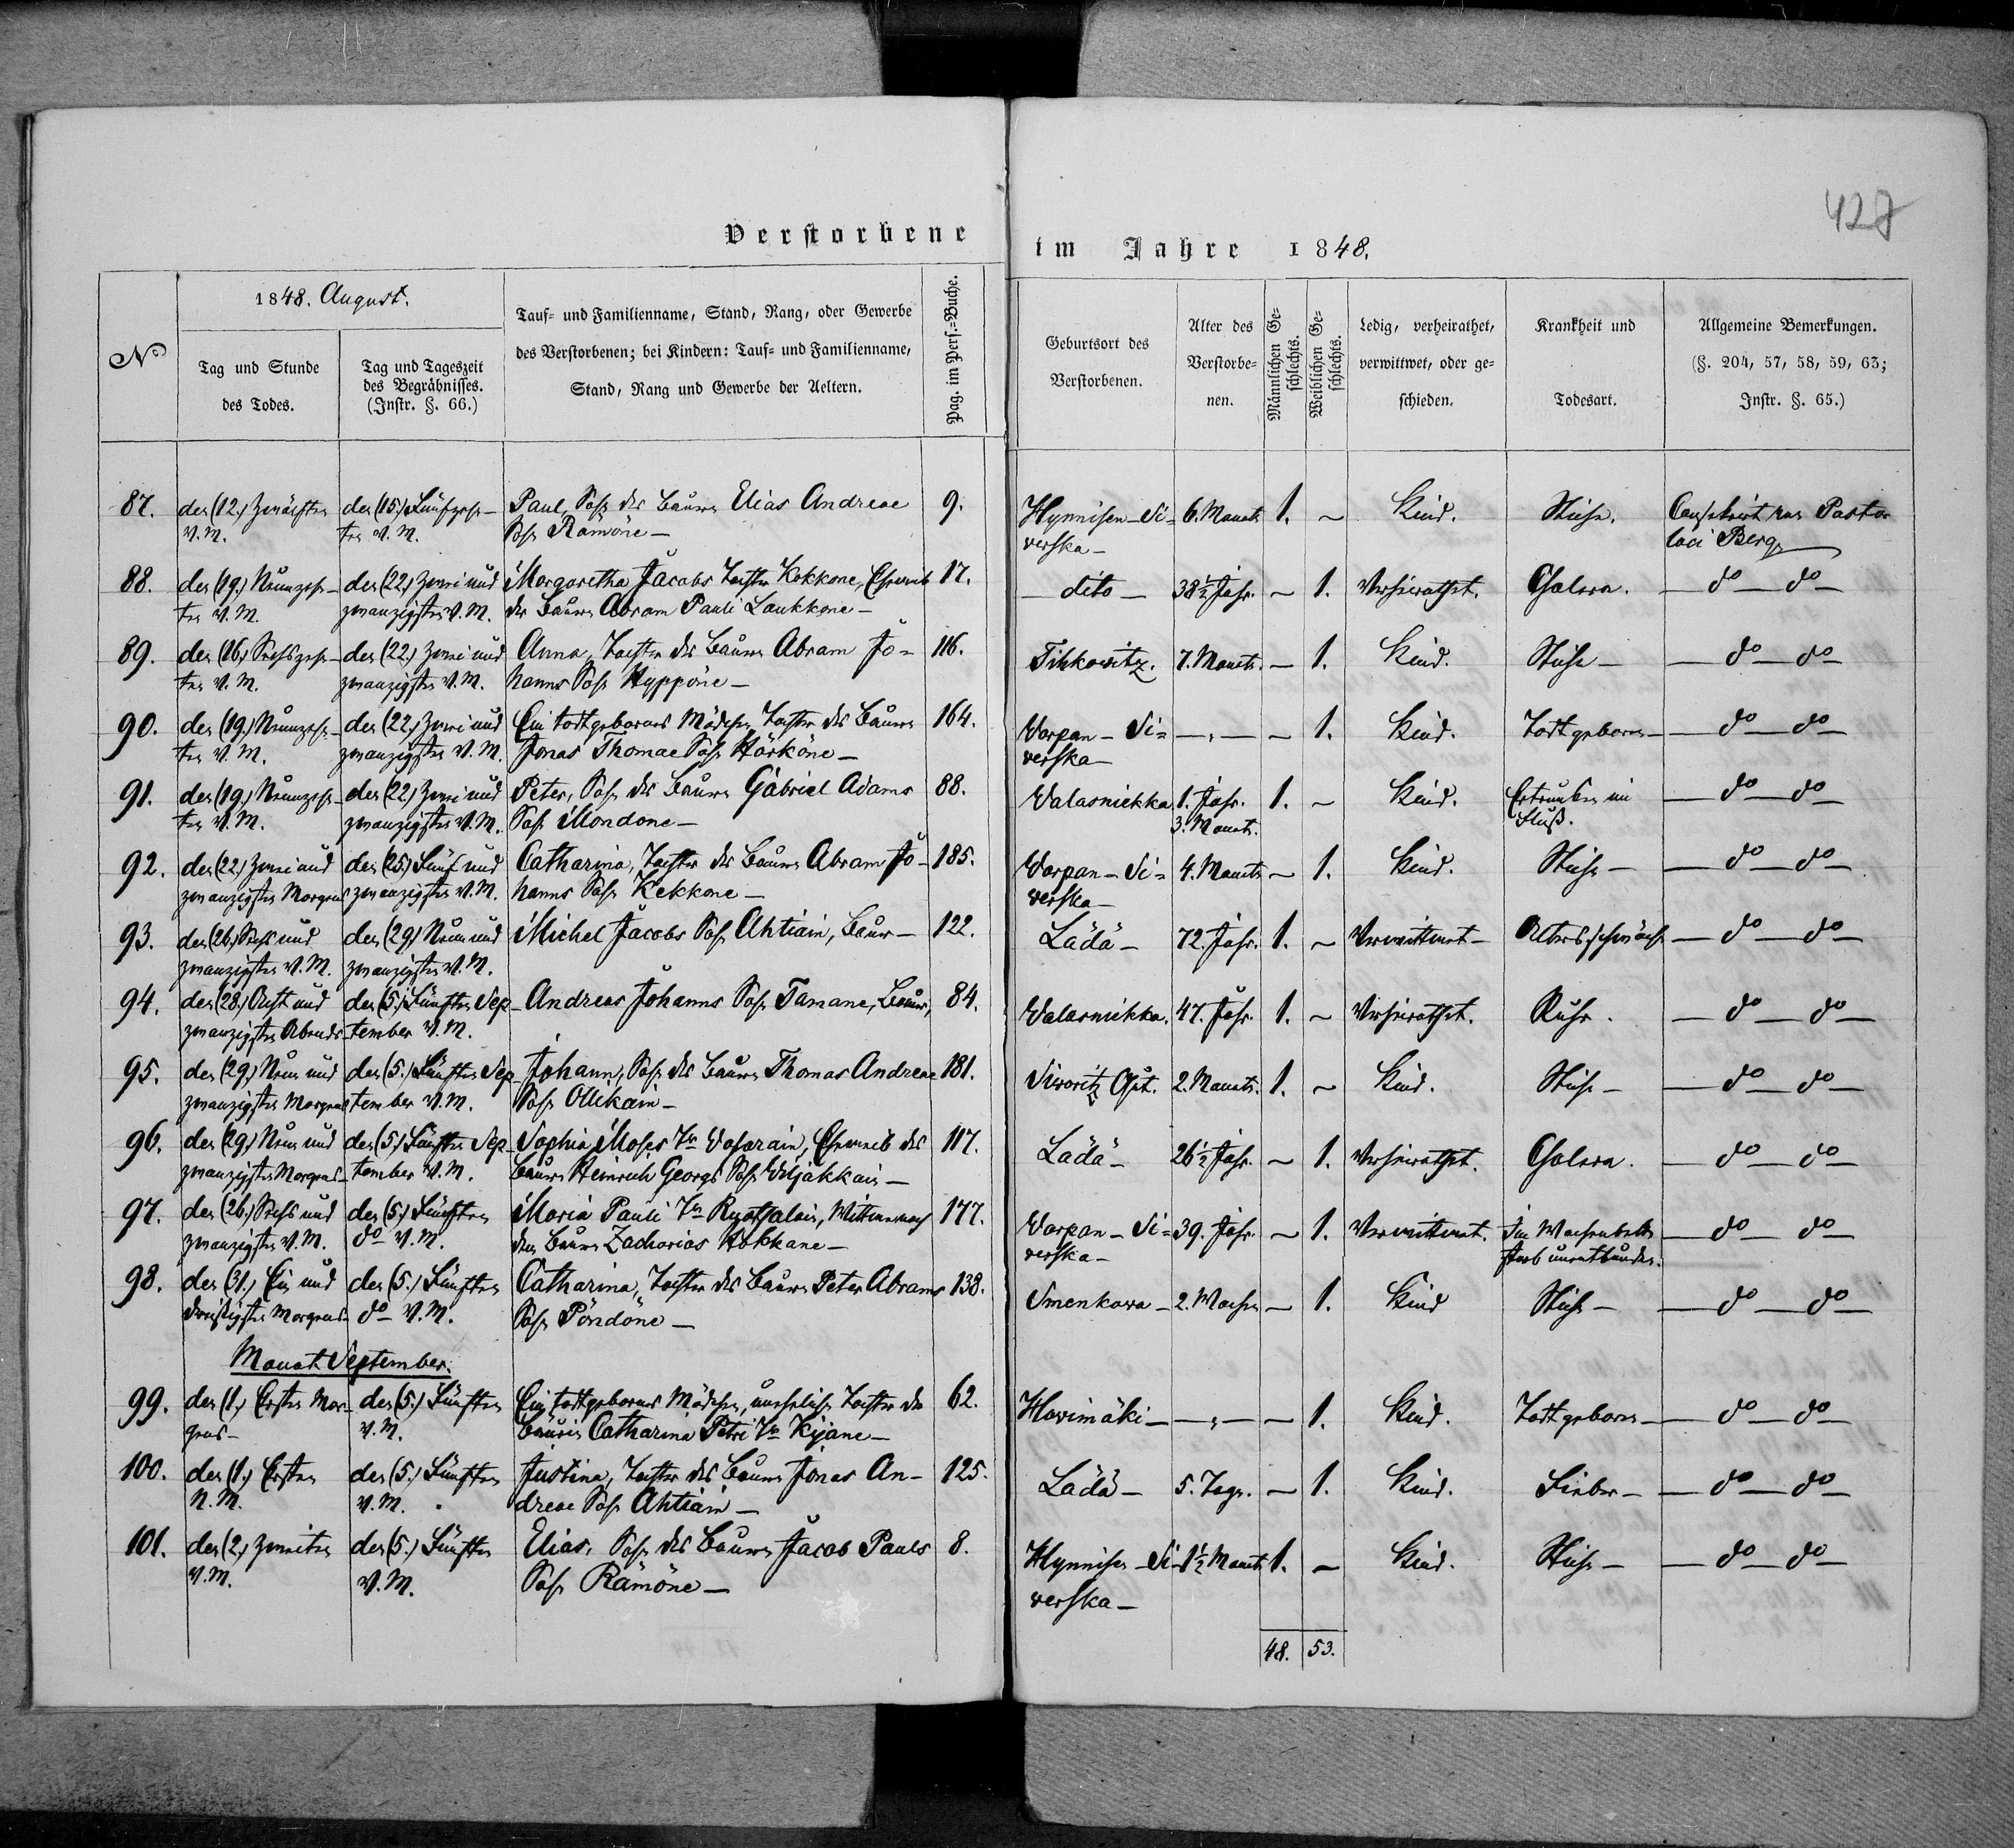 427
Verstorbene im Jahre 1848.
1848. August.
No
Tag und Stunde
des Todes.
Tag und Tageszeit
des Begräbnisses.
(Instr. §. 66.)
Tauf= und Familienname, Stand, Rang, oder Gewerbe
des Verstorbenen; bei Kindern: Tauf= und Familienname,
Stand, Rang und Gewerbe der Aeltern.
Pag. im Pers.=Buche.
Geburtsort des
Verstorbenen.
Alter des
Verstorbe=
nen.
Männlichen Ge=
schlechts.
Weiblichen Ge=
schlechts.
Ledig, verheirathet,
verwittwet, oder ge=
schieden.
Krankheit und
Todesart.
Allgemeine Bemerkungen.
(§. 204, 57, 58, 59, 63;
Instr. §. 65.)
87. den (12.) Zwölften den (15.) Fünfzehn- Paul, Sohn des Bauern Elias Andreae 9. Hynnisen-Si= 6. Monate 1. ~ Kind. Husten. Pastor
V. M. ten V. M. Sohn Rämöne — verska — loci Berg
88. den (19.) Neunzehn- den (22.) Zwei und Margaretha Jacobs Tochter Kokkone, Eheweib 17. — dito — 38½ Jahr. ~ 1. Verheirathet. Cholera. — do — do —
ten V. M. zwanzigsten V. M. des Bauern Abram Pauli Laukkone —
89. den (16.) Sechszehn- den (22.) Zwei und Anna, Tochter des Bauern Abram Jo= 116. Tihkowitz. 7. Monate. — 1. Kind. Husten — — do — do —
ten V. M. zwanzigsten V. M. hanns Sohn Hyppöne —
90. den (19.) Neunzehn- den (22.) Zwei und Ein todtgebornes Mädchen, Tochter des Bauern 164. Warpan-Si= — „ — ~ 1. Kind. Todtgeboren — — do — do —
ten V. M. zwanzigsten V. M. Jonas Thomae Sohn Härköne — verska —
91. den (19.) Neunzehn- den (22.) Zwei und Peter, Sohn des Bauern Gabriel Adams 88. Walasniekka. 1. Jahr. 1. ~ Kind. Ertrunken im — do — do —
ten V. M. zwanzigsten V. M. Sohn Mondone — 3. Monate. Fluß.
92. den (22.) Zwei und den (25.) Fünf und Catharina, Tochter des Bauern Abram Jo- 185. Warpan-Si= 4. Monate ~ 1. Kind. Husten — — do — do —
zwanzigsten Morgens zwanzigsten V. M. hanns Sohn Kekkone — verska —
93. den (26.) Sechs und den (29.) Neun und Michel Jacobs Sohn Ahtiain, Bauer — 122. Lädä — 72. Jahr. 1. ~ Verwittwet — Altersschwäche — do — do —
zwanzigsten V. M. zwanzigsten V. M.
94. den (28.) Acht und den (5.) Fünften Sep- Andreas Johanns Sohn Tamane, Bauer, 84. Walasniekka. 47. Jahr. 1. ~ Verheirathet. Ruhr. — do — do —
zwanzigsten Abends tember V. M.
95. den (29.) Neun und den (5.) Fünften Sep- Johann, Sohn des Bauern Thomas Andreae 181. Siworitz 2. Monate. 1. ~ Kind. Husten — — do — do —
zwanzigsten Morgens tember V. M. Sohn Ollikain —
96. den (29.) Neun und den (5.) Fünften Sep- Sophia Moses Tr. Eheweib des 117. Lädä — 26½ Jahr. ~ 1. Verheirathet. Cholera. — do — do —
zwanzigsten Morgens tember V. M. Bauern Heinrich Georgs Sohn Wiljakkain —
97. den (26.) Sechs und den (5.) Fünften Maria Pauli Tr. 177. Warpan-Si= 39. Jahr. ~ 1. Verwittwet. Im Wochenbette — do — do —
zwanzigsten V. M. do V. M. des Bauern Zacharias Hokkane — verska — starb unentbunden.
98. den (31.) Ein und den (5.) Fünften Catharina, Tochter des Bauern Peter Abrams 138. Smenkowa — 2. Wochen — 1. Kind Husten — — do — do —
dreißigsten Morgens do V. M. Sohn Pöndöne —
Monat September.
99. den (1.) Ersten Mor- den (5.) Fünften Ein todtgebornes Mädchen, uneheliche Tochter der 62. Howimäki — — „ — — 1. Kind. Todtgeboren — — do — do —
gens — V. M. Bäuerin Catharina Petri Tr. Kijane —
100. den (1.) Ersten den (5.) Fünften Justina, Tochter des Bauern Jonas An- 125. Lädä — 5. Tage. — 1. Kind. Fieber — — do — do —
N. M. V. M. dreae Sohn Ahtiain —
101. den (2.) Zweiten den (5.) Fünften Elias, Sohn des Bauern Jacob Pauls 8. Hynnisen-Si- 1½ Monate 1. ~ Kind. Husten — — do — do —
V. M. V. M. Sohn Rämöne — verska —
48. 53.